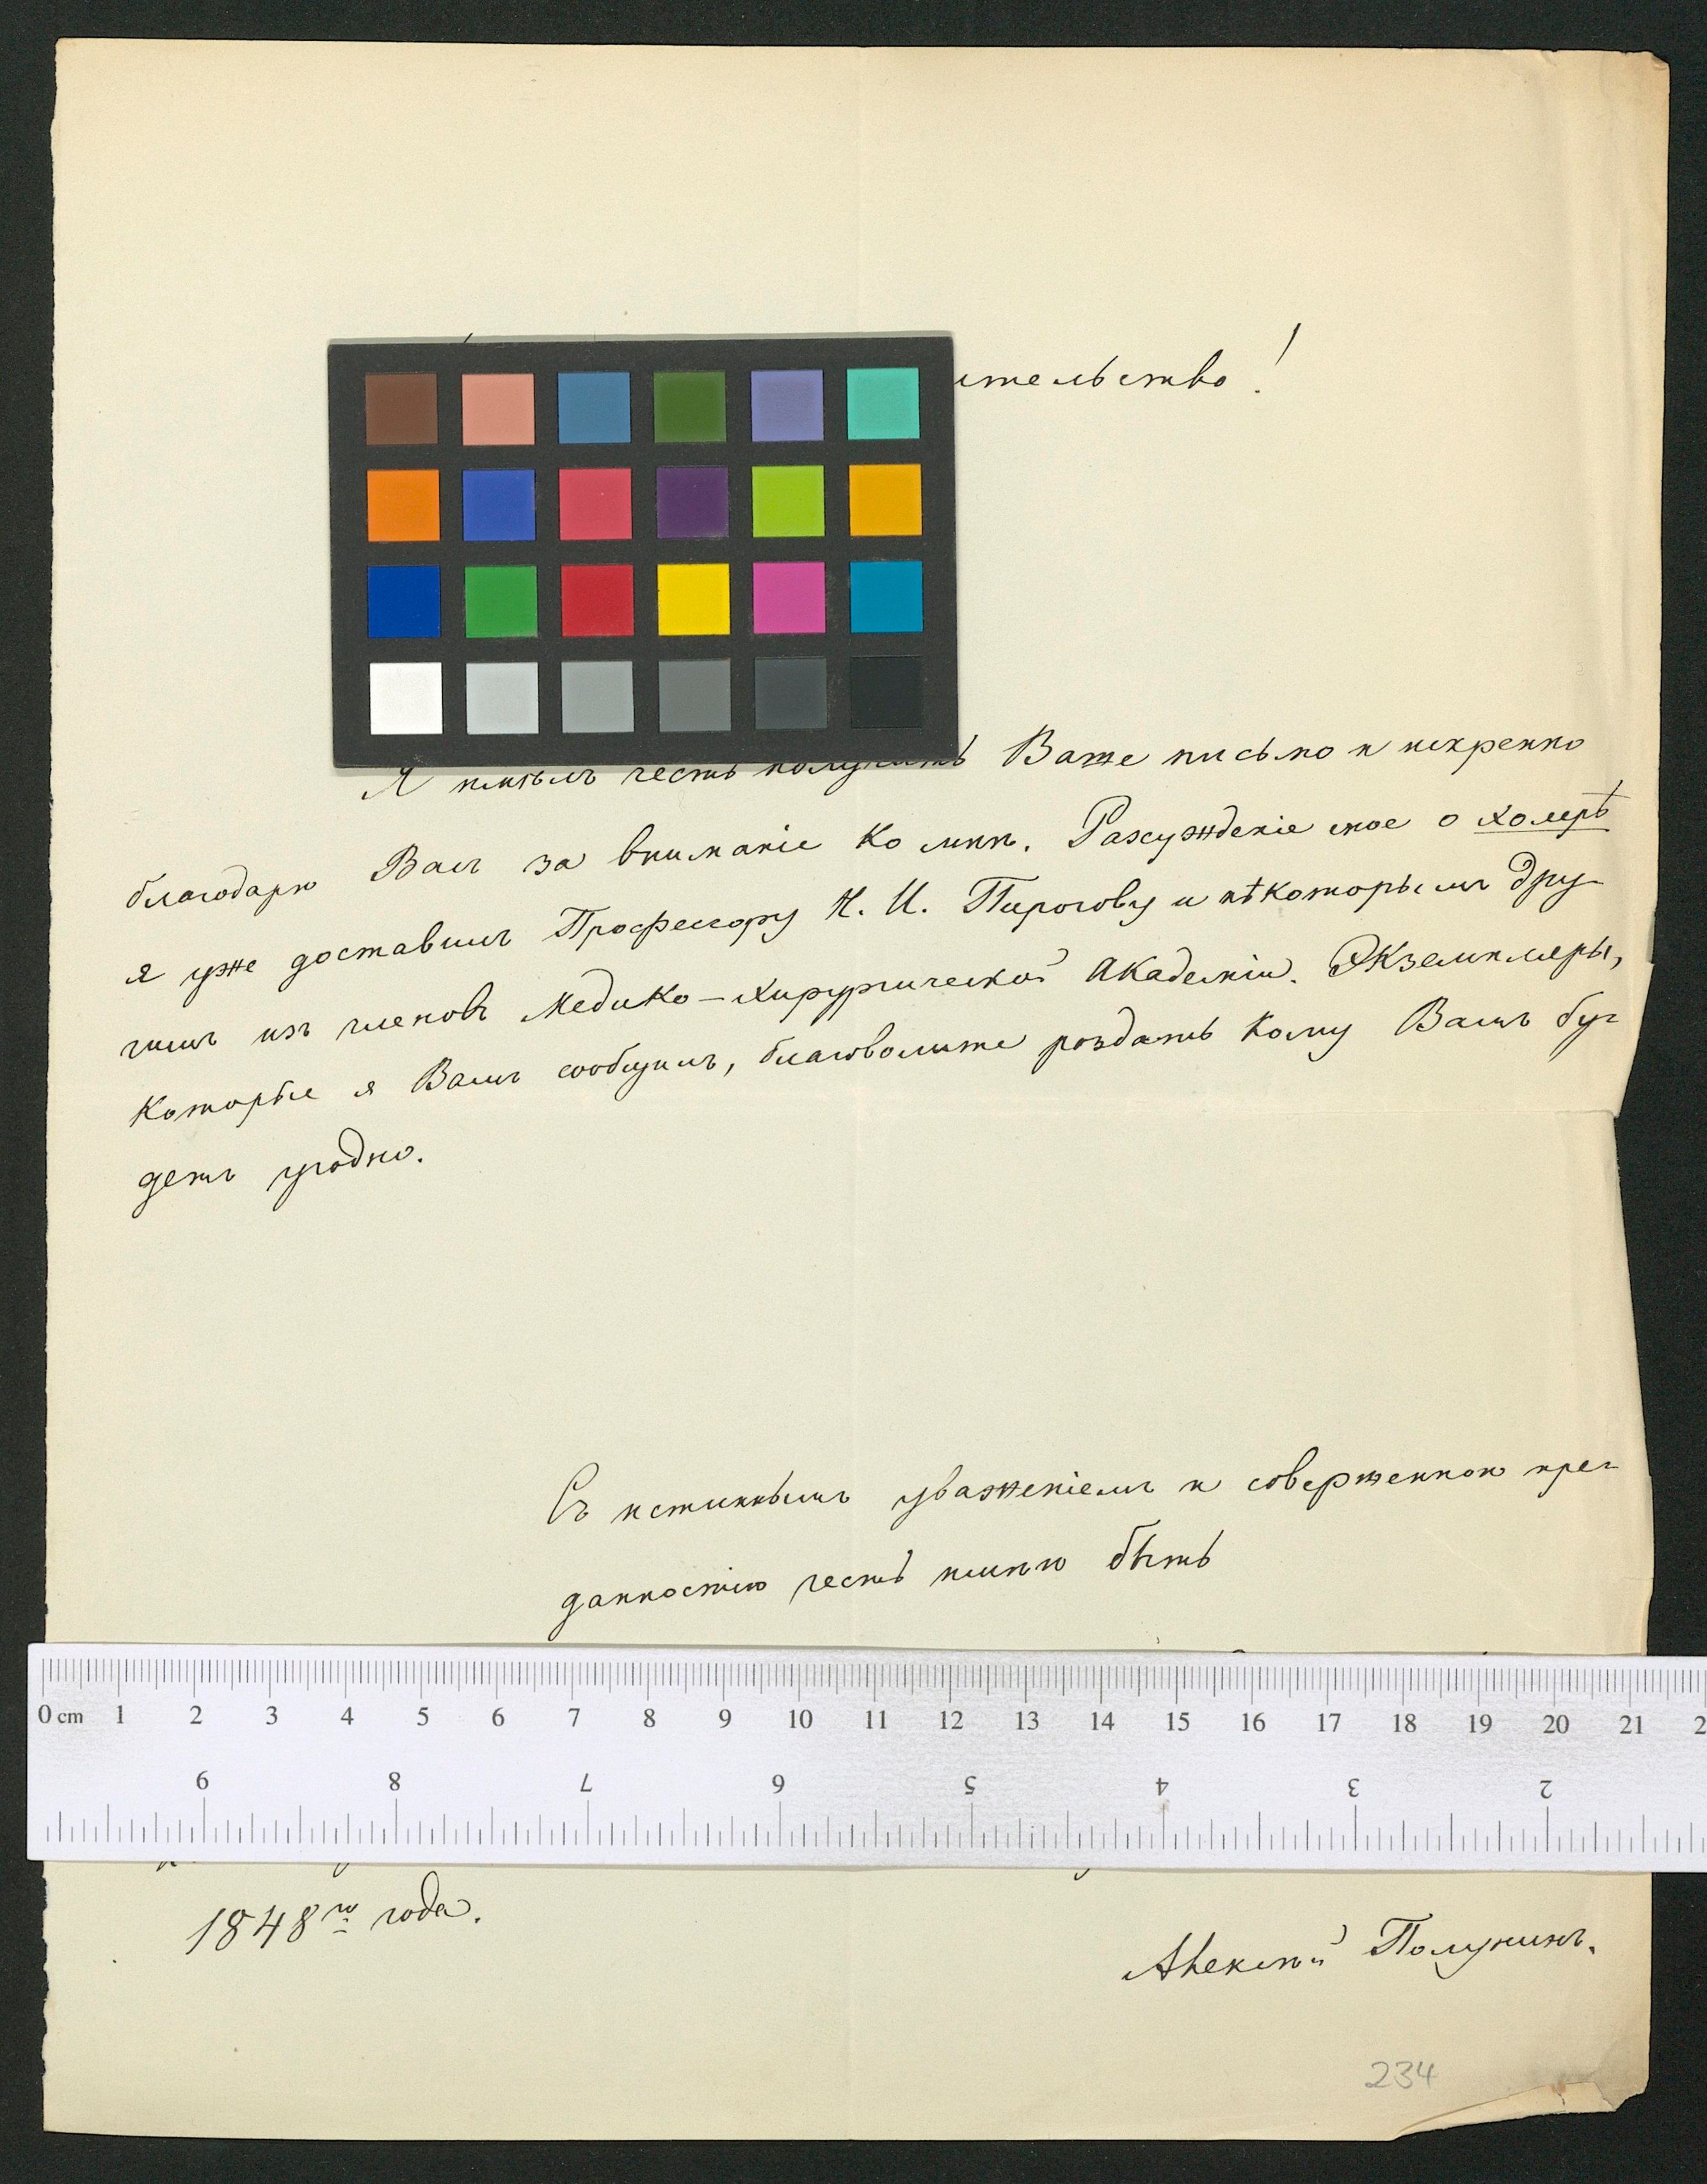 ительство!
Я имѣлъ честь получить Ваше письмо и искренно
благодарю Васъ за вниманіе ко мнѣ. Разсужденіе мое о холерѣ
я уже доставилъ Профессору Н. И. Пирогову и нѣкоторымъ дру-
гимъ изъ членовъ Медико-Хирургической Академіи. Экземпляры,
которые я Вамъ сообщилъ, благоволите роздать кому Вамъ бу-
детъ угодно.
Съ истиннымъ уваженіемъ и совершенною пре-
данностію честь имѣю быть
0 cm 1 2 3 4 5 6 7 8 9 10 11 12 13 14 15 16 17 18 19 20 21 2
9 8 7 6 5 4 3 2
1848го года.
Алексѣй Полунинъ.
234